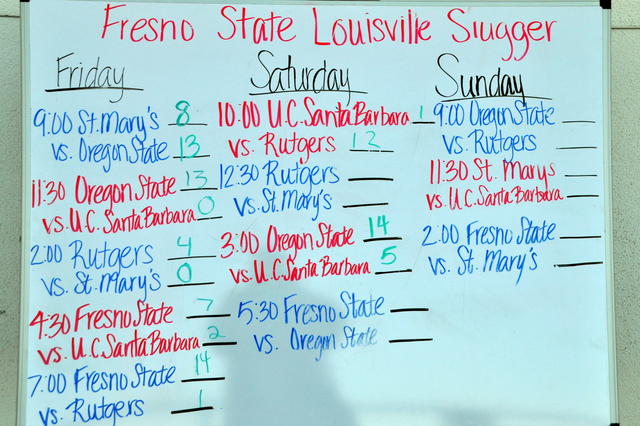 Fresno State Louisville Slugger
Friday
9:00 St. Mary's 8
vs. Oregon State 13
11:30 Oregon State 13
vs. U.C. Santa Barbara 0
2:00 Rutgers 4
vs. St. Mary's 0
4:30 Fresno State 7
vs. U.C. Santa Barbara 2
7:00 Fresno State 14
vs. Rutgers 1
Saturday
10:00 U.C. Santa Barbara 1
vs. Rutgers 12
12:30 Rutgers
vs. St. Mary's
3:00 Oregon State 14
vs. U.C. Santa Barbara 5
5:30 Fresno State
vs. Oregon State
Sunday
9:00 Oregon State
vs. Rutgers
11:30 St. Marys
vs. U.C. Santa Barbara
2:00 Fresno State
vs. St. Mary's